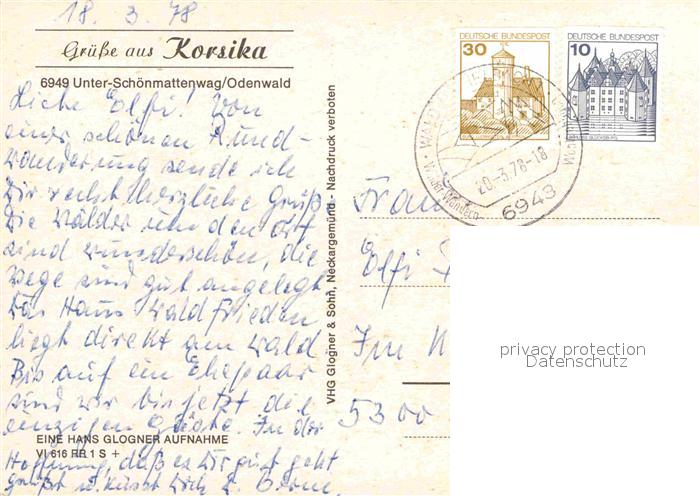 18. 3. 78
Grüße aus Korsika
6949 Unter-Schönmattenwag/Odenwald
Liebe Elfi! Von
einer schönen Rund-
wanderung sende ich
Dir recht herzliche Grüße
Die Wälder um den Ort
sind wunderschön, die
Wege sind gut angelegt
Das Haus Waldfrieden
liegt direkt am Wald.
Bis auf ein Ehepaar
sind wir bis jetzt die
einzigen Gäste. In der
EINE HANS GLOGNER AUFNAHME
VI 616 RB 1 S +
Hoffnung, daß es Dir gut geht
grüßt u. küsst Dich
VHG Glogner & Sohn, Neckargemünd - Nachdruck verboten
DEUTSCHE BUNDESPOST
30
DEUTSCHE BUNDESPOST
10
20.-3.78-18
6948
Frau
Elfi
Im
5300
privacy protection
Datenschutz